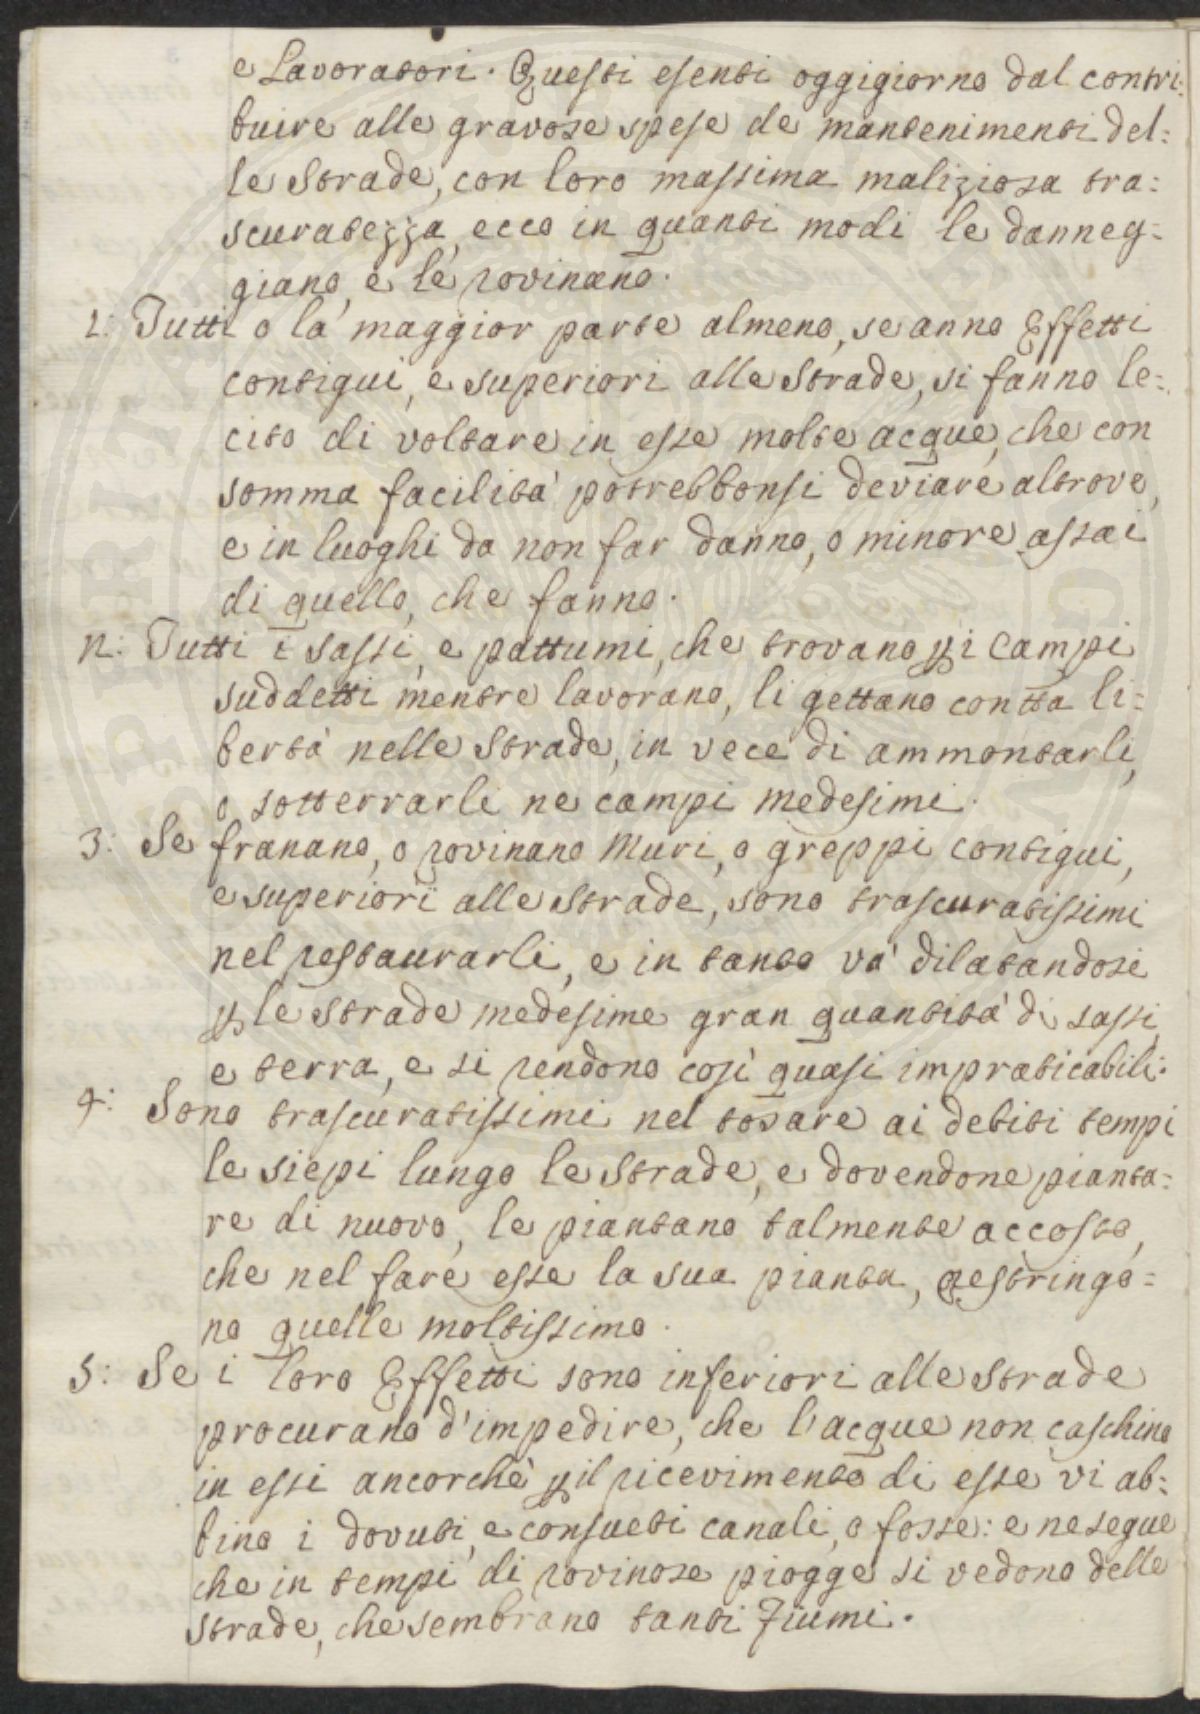 e Lavoratori. Questi esenti oggigiorno dal contri:
buire alle gravose spese de mantenimenti del:
le Strade, con loro massima maliziosa tra:
scuratezza, ecco in quanti modi le danneg:
giano, e le rovinano.
1: Tutti o la maggior parte almeno, se anno Effetti
contigui, e superiori alle Strade, si fanno le:
cito di voltare in esse molte acque, che con
somma facilità potrebbonsi deviare altrove,
e in luoghi da non far danno, o minore assai
di quello, che fanno.
2: Tutti i sassi, e pattumi, che trovano pi Campi
suddetti mentre lavorano, li gettano con tta li:
bertà nelle Strade, in vece di ammontarli,
o sotterrarli ne campi medesimi.
3: Se franano, o rovinano Muri, o greppi contigui,
e superiori alle Strade, sono trascuratissimi
nel restaurarli, e in tanto và dilatandosi
p le Strade medesime gran quantità di sassi,
e terra, e si rendono così quasi impraticabili.
4: Sono trascuratissimi nel tosare ai debiti tempi
le siepi lungo le Strade, e dovendone pianta:
re di nuovo, le piantano talmente accosto,
che nel fare esse la sua pianta, restringo:
no quelle moltissimo.
5: Se i loro Effetti sono inferiori alle Strade
procurano d'impedire, che l'acque non caschino
in essi ancorchè p il ricevimento di esse vi ab:
bino i dovuti, e consueti canali, o fosse: e ne segue
che in tempi di rovinose piogge si vedono delle
Strade, che sembrano tanti Fiumi.